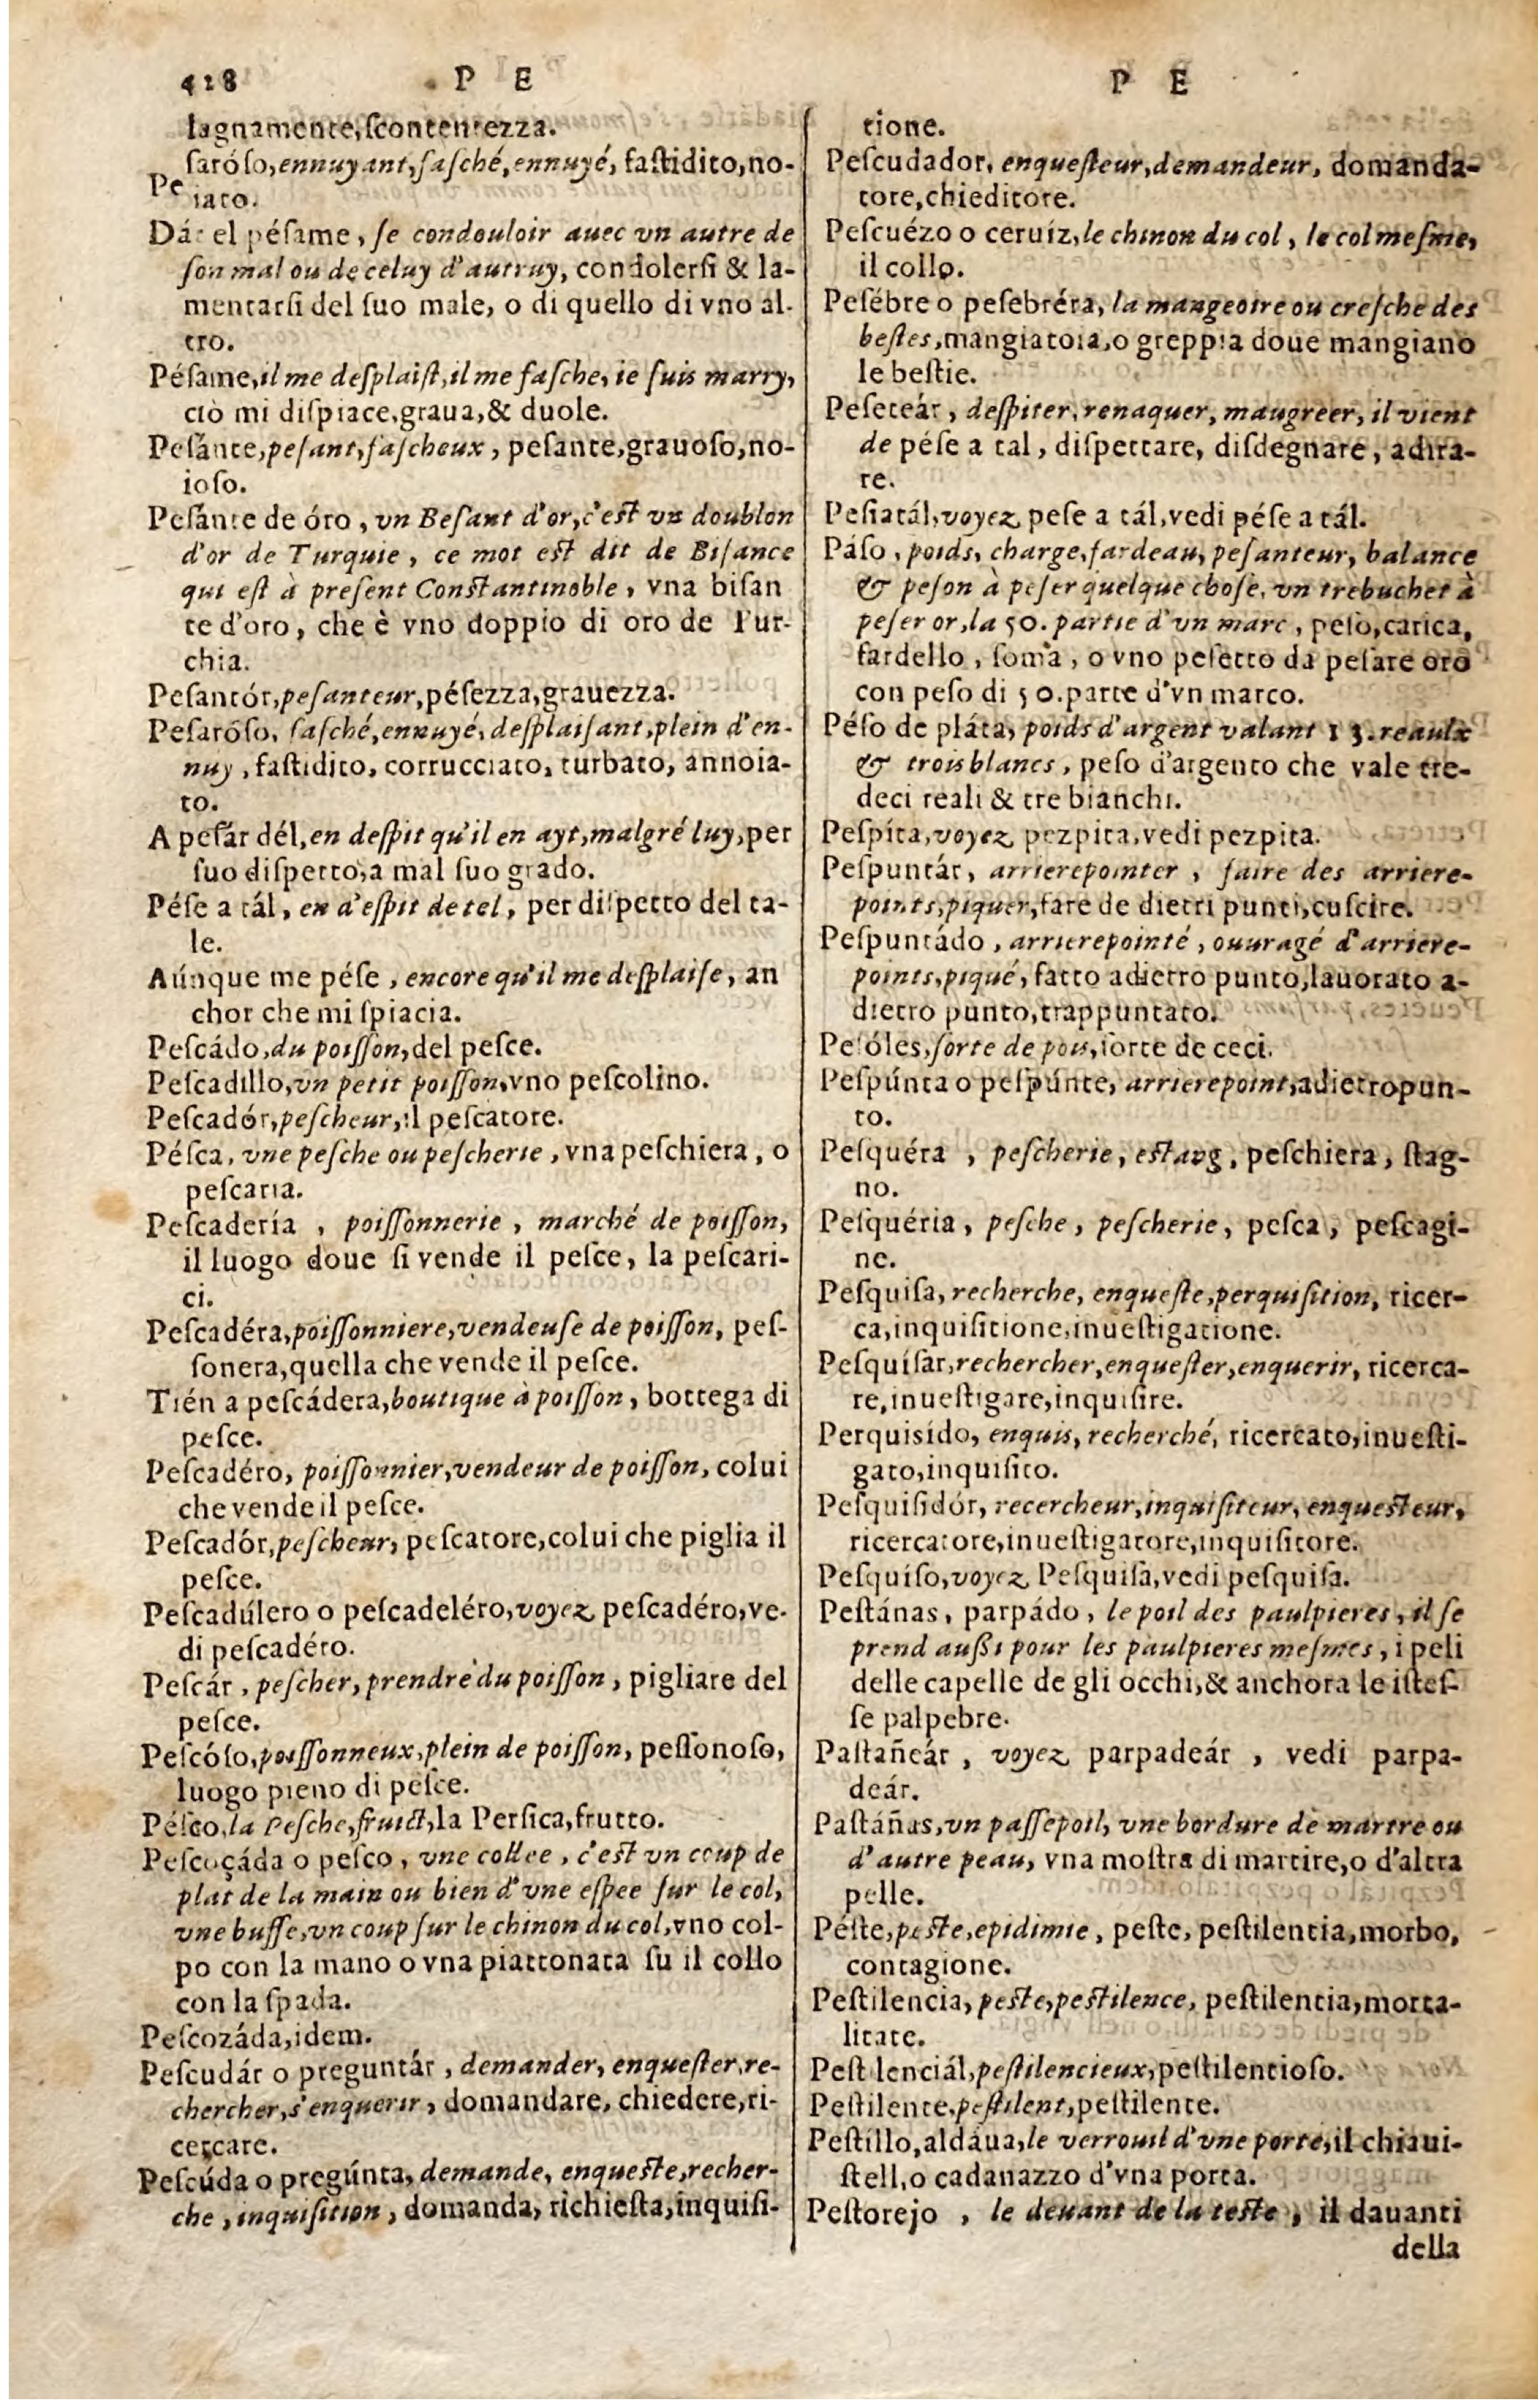 428 P E
lagnamente,ſcontentezza.
ſaróſo,ennuyant,faſché,ennuyé, faſtidito,no-
Pe iato.
Dár el péſame, ſe condouloir auec vn autre de
ſon mal ou de celuy d'autruy, condolerſi & la-
mentarſi del ſuo male, o di quello di vno al-
tro.
Péſame,il me deſplaiſt,il me faſche, ie ſuis marry,
ciò mi diſpiace,graua,& duole.
Peſánte,peſant,faſcheux, peſante,grauoſo,no-
ioſo.
Peſánte de óro, vn Beſant d'or,c'eſt vn doublon
d'or de Turquie, ce mot eſt dit de Biſance
qui eſt à preſent Conſtantinoble, vna biſan
te d'oro, che è vno doppio di oro de Tur-
chia.
Peſantór,peſanteur,péſezza,grauezza.
Peſaróſo, faſché,ennuyé,deſplaiſant,plein d'en-
nuy, faſtidito, corrucciato, turbato, annoia-
to.
A peſár dél,en deſpit qu'il en ayt,malgré luy,per
ſuo diſpetto,a mal ſuo grado.
Péſe a tál, en d'eſpit de tel, per diſpetto del ta-
le.
Aúnque me péſe, encore qu'il me deſplaiſe, an
chor che mi ſpiacia.
Peſcádo,du poiſſon,del peſce.
Peſcadillo,vn petit poiſſon,vno peſcolino.
Peſcadór,peſcheur,il peſcatore.
Péſca, vne peſche ou peſcherie, vna peſchiera, o
peſcaria.
Peſcadería, poiſſonnerie, marché de poiſſon,
il luogo doue ſi vende il peſce, la peſcari-
ci.
Peſcadéra,poiſſonniere,vendeuſe de poiſſon, peſ-
ſonera,quella che vende il peſce.
Tién a peſcádera,boutique à poiſſon, bottega di
peſce.
Peſcadéro, poiſſonnier,vendeur de poiſſon, colui
che vende il peſce.
Peſcadór,peſcheur, peſcatore,colui che piglia il
peſce.
Peſcadúlero o peſcadeléro,voyez peſcadéro,ve-
di peſcadéro.
Peſcár, peſcher, prendre du poiſſon, pigliare del
peſce.
Peſcóſo,poiſſonneux,plein de poiſſon, peſſonoſo,
luogo pieno di peſce.
Péſco,la Peſche,fruict,la Perſica,frutto.
Peſcoçáda o peſco, vne collee, c'eſt vn coup de
plat de la main ou bien d'vne eſpee ſur le col,
vne buffe,vn coup ſur le chinon du col,vno col-
po con la mano o vna piattonata ſu il collo
con la ſpada.
Peſcozáda,idem.
Peſcudár o preguntár, demander, enqueſter,re-
chercher,s'enquerir, domandare, chiedere,ri-
cercare.
Peſcúda o pregúnta, demande, enqueſte,recher-
che, inquiſition, domanda, richieſta,inquiſi-
P E
tione.
Peſcudador, enqueſteur,demandeur, domanda-
tore,chieditore.
Peſcuézo o ceruíz,le chinon du col, le col meſme,
il collo.
Peſébre o peſebréra, la mangeoire ou creſche des
beſtes,mangiatoia,o greppia doue mangiano
le beſtie.
Peſeteár, deſpiter,renaquer, maugreer, il vient
de péſe a tal, diſpettare, diſdegnare, adira-
re.
Peſiatál,voyez peſe a tál,vedi péſe a tál.
Páſo, poids, charge,fardeau, peſanteur, balance
& peſon à peſer quelque choſe, vn trebuchet à
peſer or,la 50. partie d'vn marc, peſo,carica,
fardello, ſoma, o vno peſetto da peſare oro
con peſo di 50.parte d'vn marco.
Péſo de pláta, poids d'argent valant 13.reaulx
& trois blancs, peſo d'argento che vale tre-
deci reali & tre bianchi.
Peſpíta,voyez pezpita,vedi pezpita.
Peſpuntár, arrierepointer, faire des arriere-
points,piquer,fare de dietri punti,cuſcire.
Peſpuntádo, arrierepointé, ouuragé d'arriere-
points,piqué, fatto adietro punto,lauorato a-
dietro punto,trappuntato.
Peſóles,ſorte de pois,ſorte de ceci.
Peſpúnta o peſpúnte, arrierepoint,adietropun-
to.
Peſquéra, peſcherie, eſtang, peſchiera, ſtag-
no.
Peſquéria, peſche, peſcherie, peſca, peſcagi-
ne.
Peſquiſa, recherche, enqueſte,perquiſition, ricer-
ca,inquiſitione,inueſtigatione.
Peſquiſar,rechercher,enqueſter,enquerir, ricerca-
re,inueſtigare,inquiſire.
Perquisído, enquis, recherché, ricercato,inueſti-
gato,inquiſito.
Peſquiſidór, recercheur,inquiſiteur, enqueſteur,
ricercatore,inueſtigatore,inquiſitore.
Peſquíſo,voyez Peſquiſa,vedi peſquiſa.
Peſtánas, parpádo, le poil des paulpieres, il ſe
prend auſſi pour les paulpieres meſmes, i peli
delle capelle de gli occhi,& anchora le iſteſ-
ſe palpebre.
Paſtañeár, voyez parpadeár, vedi parpa-
deár.
Paſtáñas,vn paſſepoil, vne bordure de martre ou
d'autre peau, vna moſtra di martire,o d'altra
pelle.
Péſte,peſte,epidimie, peſte, peſtilentia,morbo,
contagione.
Peſtilencia, peſte,peſtilence, peſtilentia,morta-
litate.
Peſtilenciál,peſtilencieux,peſtilentioſo.
Peſtilente,peſtilent,peſtilente.
Peſtíllo,aldáua,le verrouil d'vne porte,il chiaui-
ſtell,o cadanazzo d'vna porta.
Peſtorejo, le deuant de la teſte, il dauanti
della